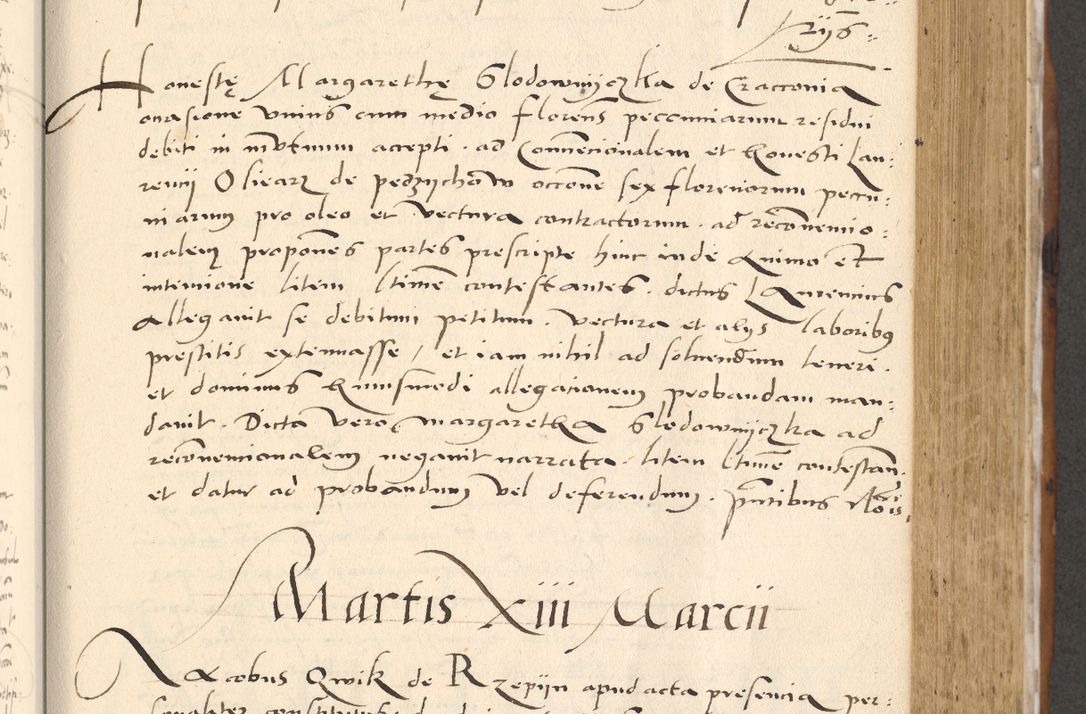 Honestę Margarethę Slodowniczka de Cracovia
occasione unius cum medio florens peccuniarum residui
debiti in mutuum accepti . ad Convencionalem et honesti Lau-
rencii Oliearz de pedzychow occone sex florenorum peccu-
niarum pro oleo et vectura contractorum . ad reconvencio-
nalem propones partes prescripte hinc inde animo et
intencione litem ltime contestantes . dictus Laurencius
allegavit se debitum petitum . vectura et alijs laboribus
prestitis extenuasse / et iam nihil ad solvendum teneri .
et dominus huiusmodi allegacionem probandam man-
davit . Dicta vero Margaretha Slodowniczka ad
reconvencionalem negavit narrata . litem ltime contestan.
et datur ad probandum vel deferendum . pntibus
Martis Xiii Marcii
Jacobus Qwik de Rzepijn apud acta presencia per-